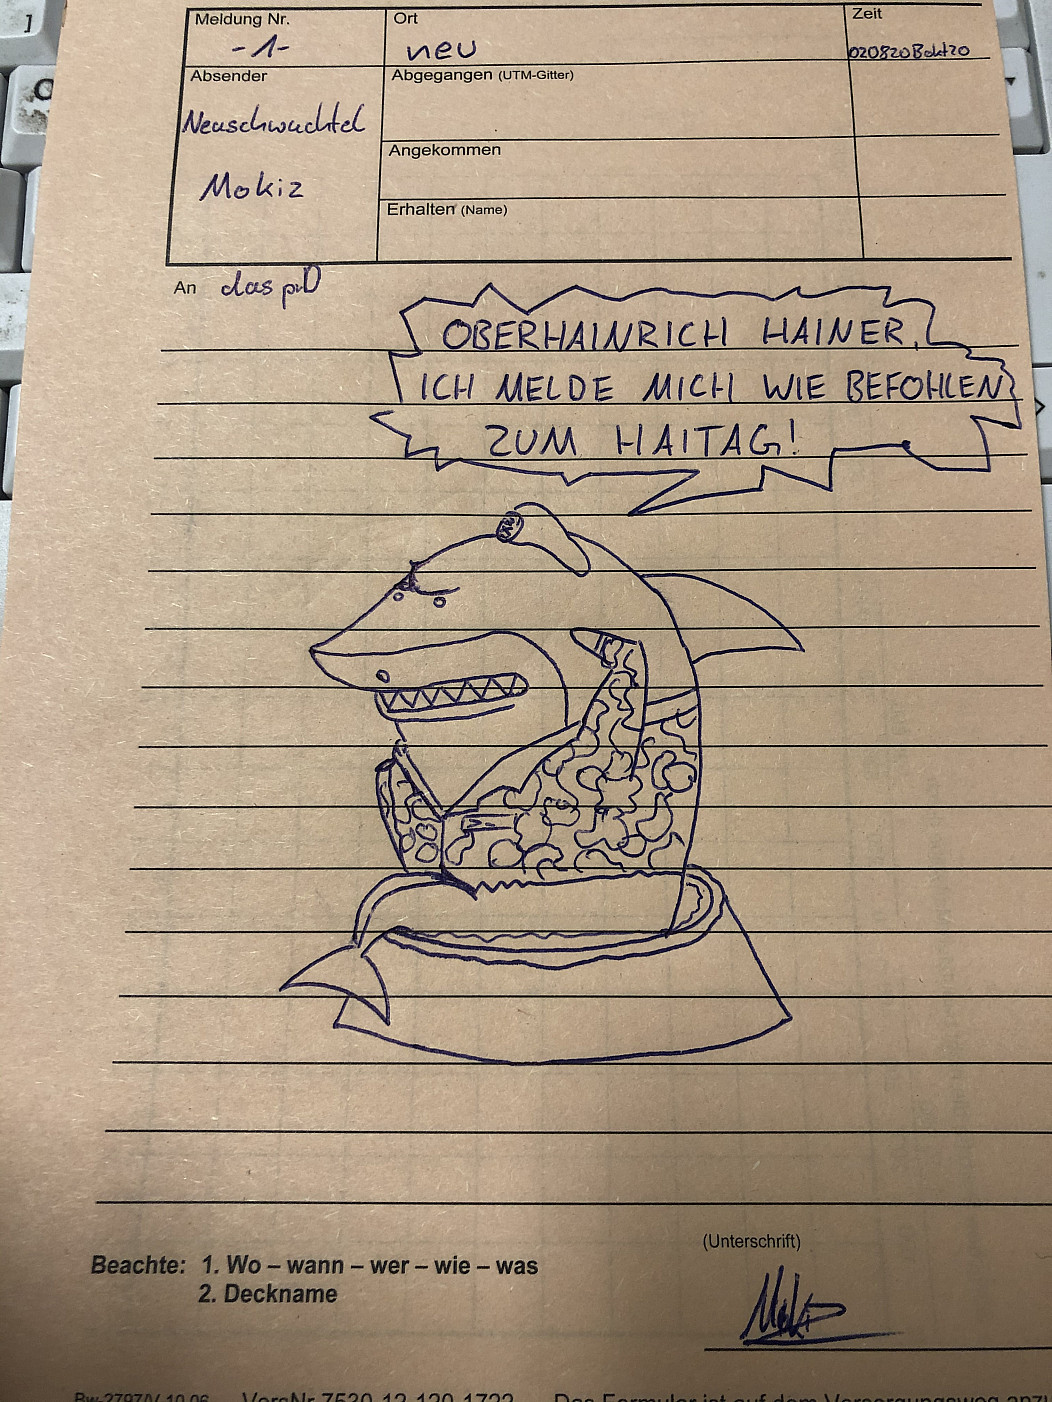 Meldung Nr.
-1-
Ort
neu
Zeit
020820Bokt20
Absender
Neuschwachtel
Mokiz
Abgegangen (UTM-Gitter)
Angekommen
Erhalten (Name)
An das pr0
OBERHAINRICH HAINER,
ICH MELDE MICH WIE BEFOHLEN
ZUM HAITAG!
(Unterschrift)
Beachte: 1. Wo – wann – wer – wie – was
2. Deckname
Bw 2797/V 10.06 VersNr 7530-12-120-1722 Das Formular ist auf dem Versorgungsweg